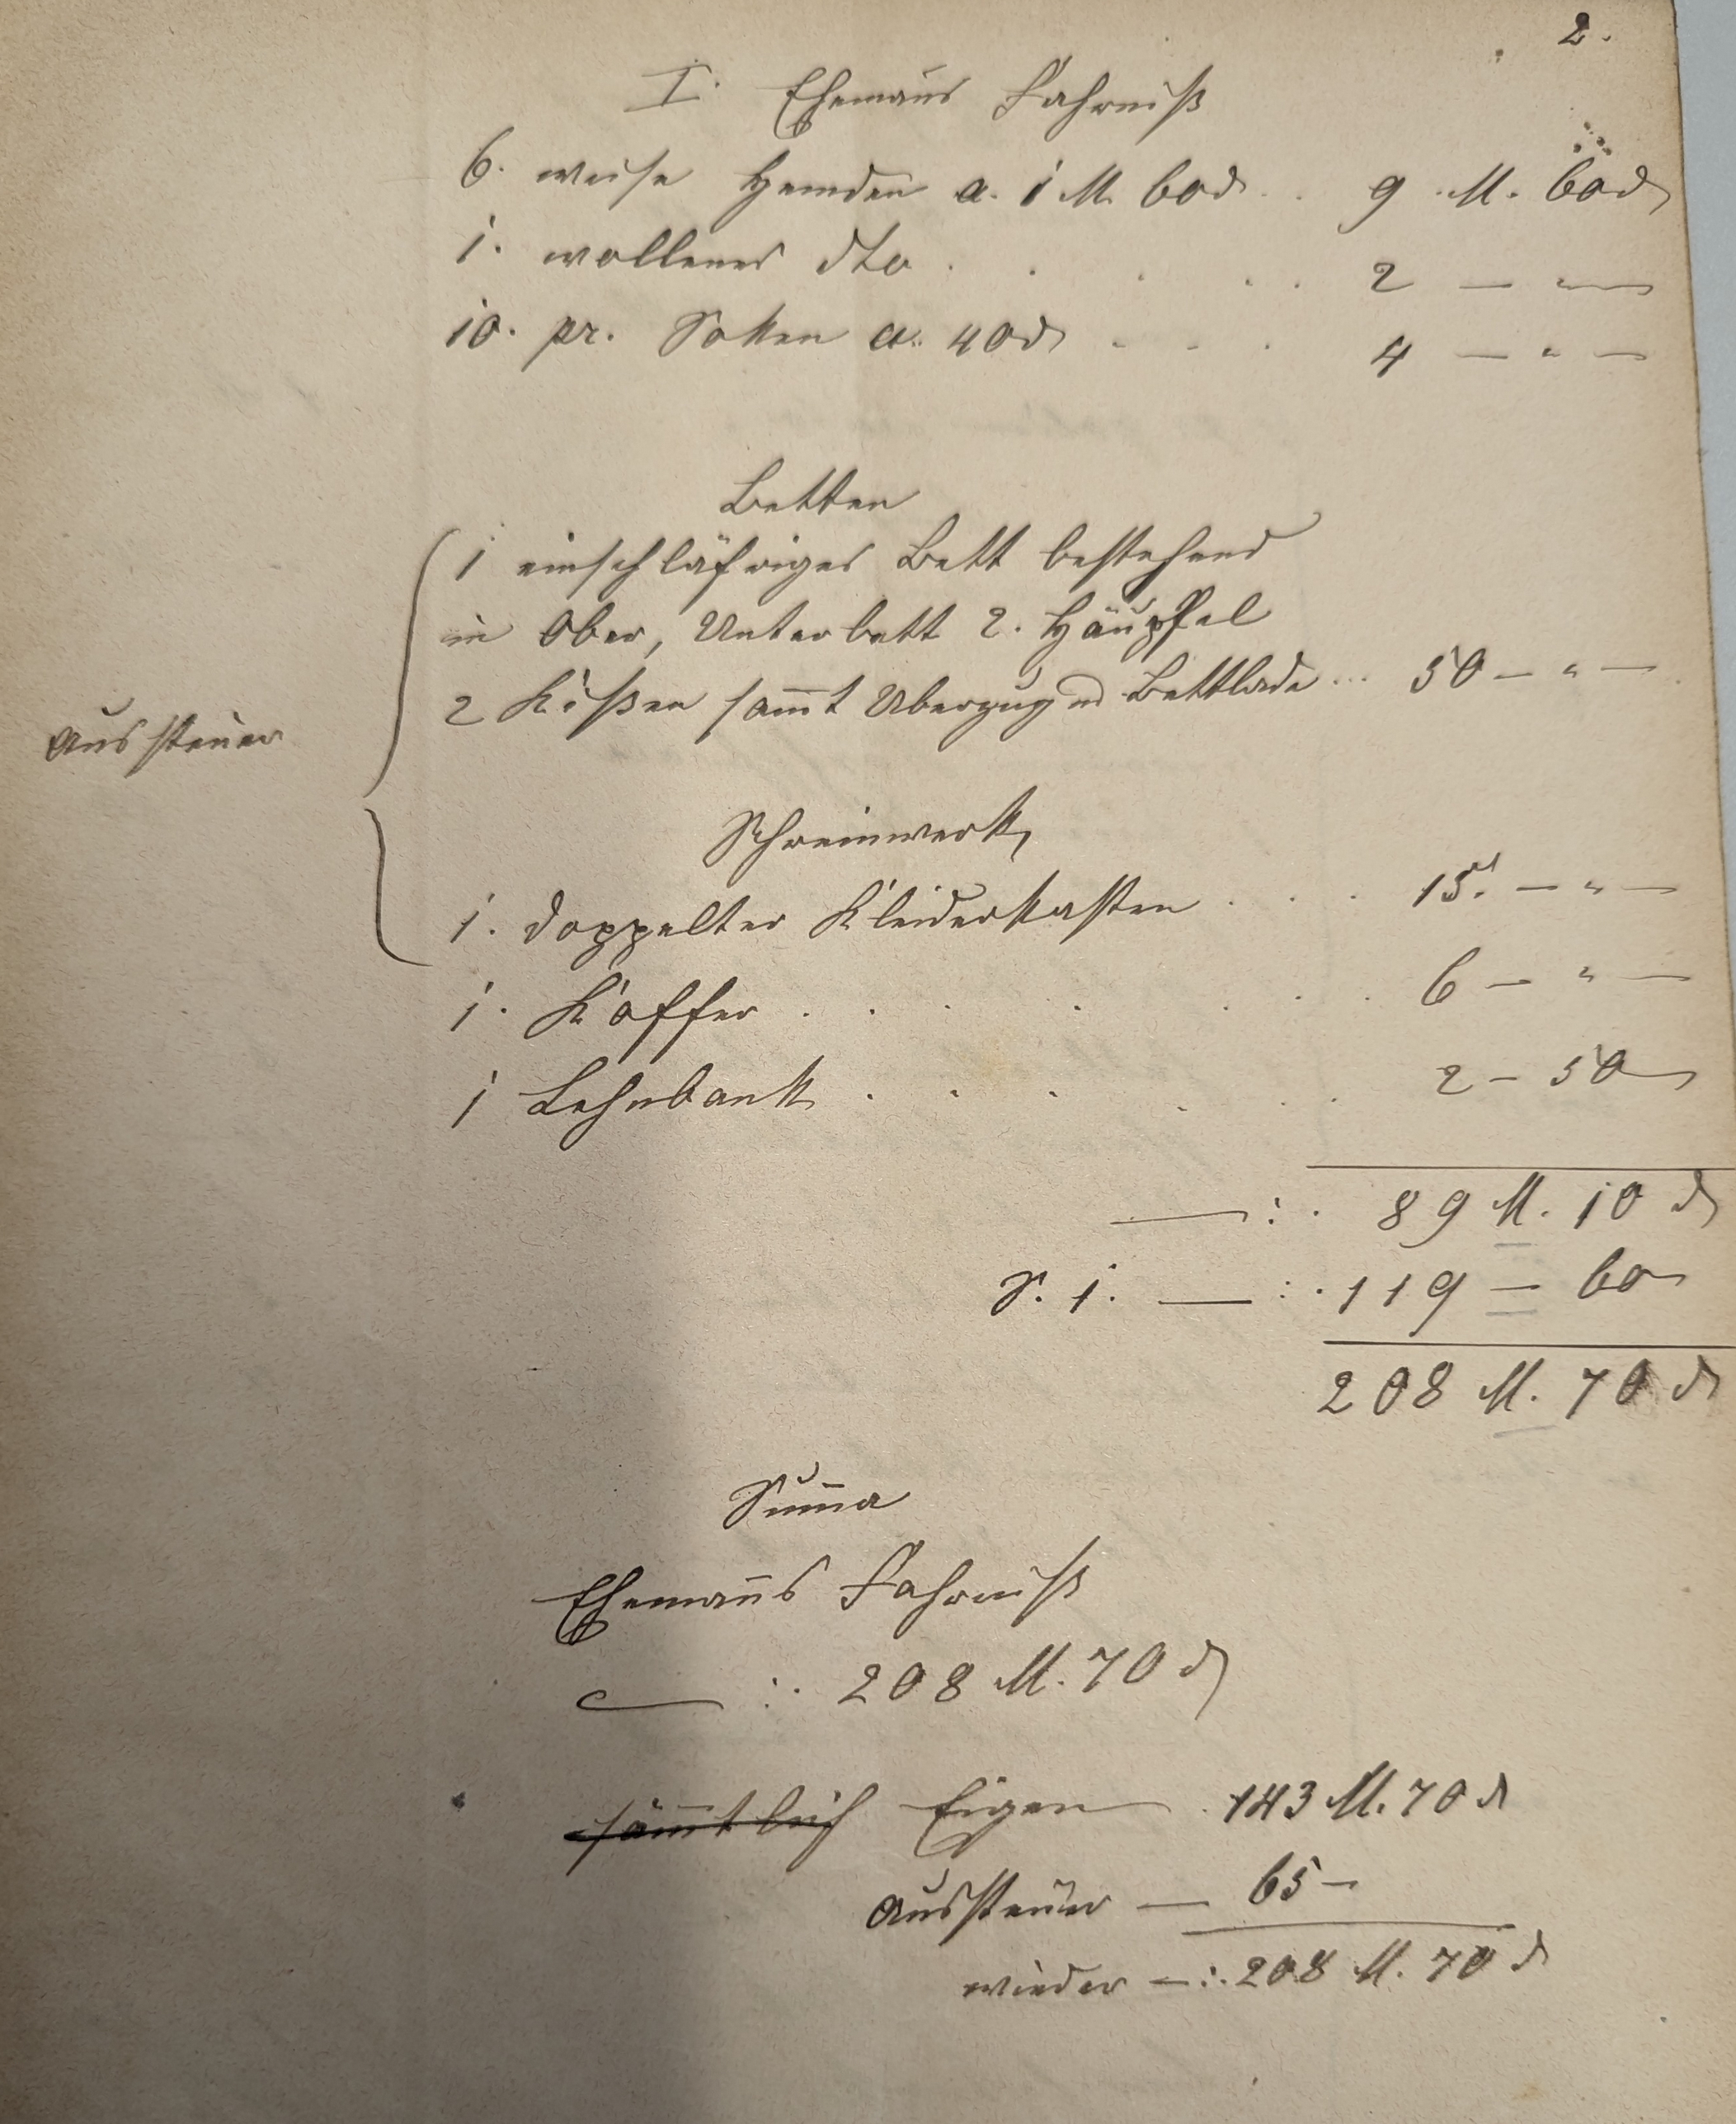 2.
I. Ehemanns Fahrniß
6. weise Hemden a. 1 M 60 ₰ . . 9 M. 60 ₰
1. wollenes dto . . . . . 2 — " —
10. pr. Soken a. 40 ₰ . . . 4 — " —
Betten
1 einschläfriges Bett bestehend
in Ober, Unterbett 2. Häupfel
2 Kißen sam̅t Uberzug und Bettlade ... 50 — " —
Aussteuer
Schreinwerk
1. doppelter Kleiderkasten . . . 15. — " —
1. Koffer . . . . . . 6 — " —
1 Lehnbank . . . . . . 2 — 50
— : . 89 M. 10 ₰
S. 1. — : . 119 — 60
208 M. 70 ₰
Sum̅a
Eheman̅s Fahrniß
— : . 208 M. 70 ₰
säm̅tlich Eigen . 143 M. 70 ₰
Aussteuer — 65 —
wieder — : . 208 M. 70 ₰